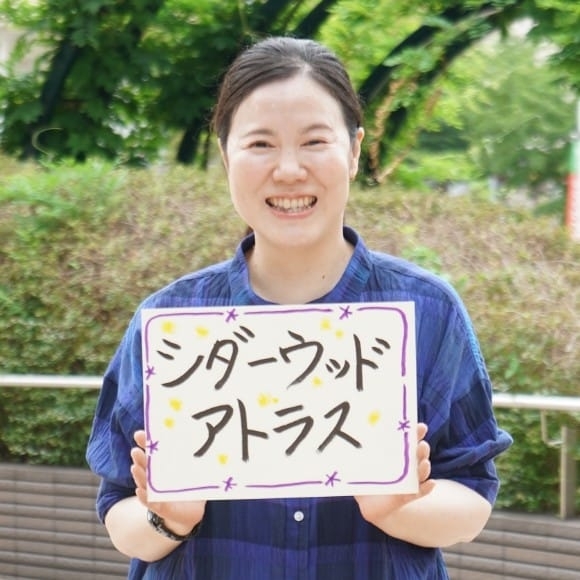 シダーウッド
アトラス